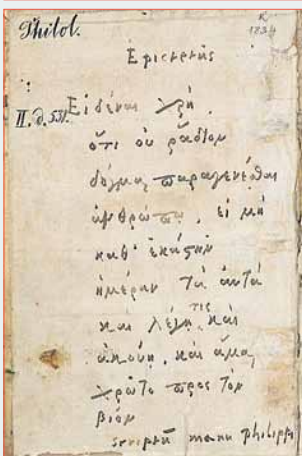 Philol.
R
1234
Epictetus
II. d. 531.
Εἰδέναι χρή
ὅτι οὐ ῥᾴδιον
δόγμα παραγενέσθαι
ἀνθρώπῳ, εἰ μὴ
καθ' ἑκάστην
ἡμέραν τὰ αὐτὰ
καὶ λέγῃ τις καὶ
ἀκούῃ, καὶ ἅμα
χρῷτο προς τὸν
βίον
scriptū manu Philippi